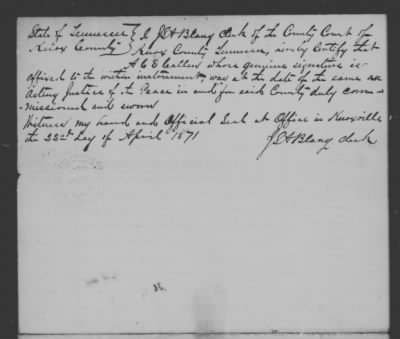 State of Tennessee } I J A Blang clerk of the County Court of
Knox County } Knox County Tennessee, hereby Certify that
A G E Callen whose genuine signature is
affixed to the within instrument, was at the date of the same an
Acting Justice of the Peace in and for said County duly com=
missioned and sworn
Witness my hand and Official Seal at Office in Knoxville
the 22nd day of April 1871
J A Blang clerk